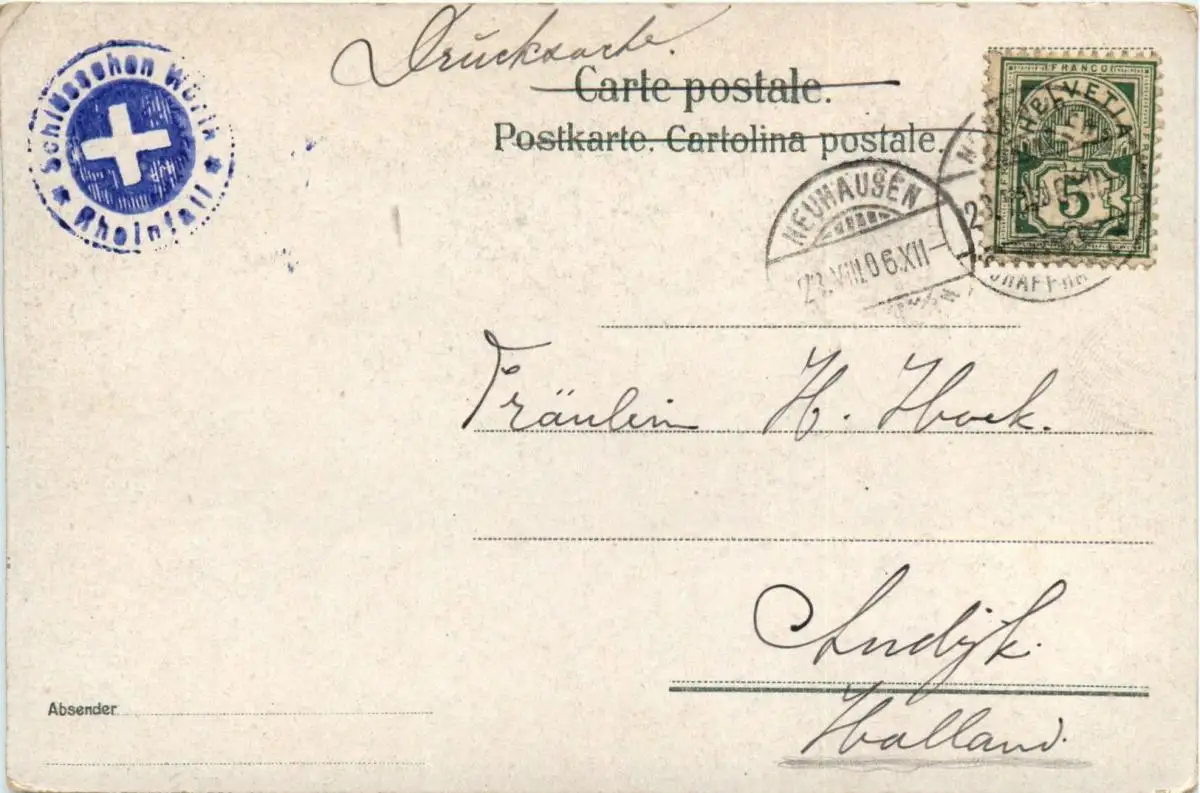 Drucksache.
Schlösschen Wörth
Rheinfall
Carte postale.
Postkarte. Cartolina postale.
FRANCO
HELVETIA
5
NEUHAUSEN
23.VIII.06.XII-
Fräulein H. Hock.
Andijk.
Holland.
Absender